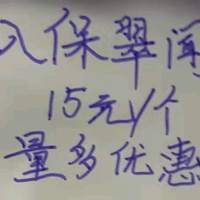 入保翠闻
15元/个
量多优惠